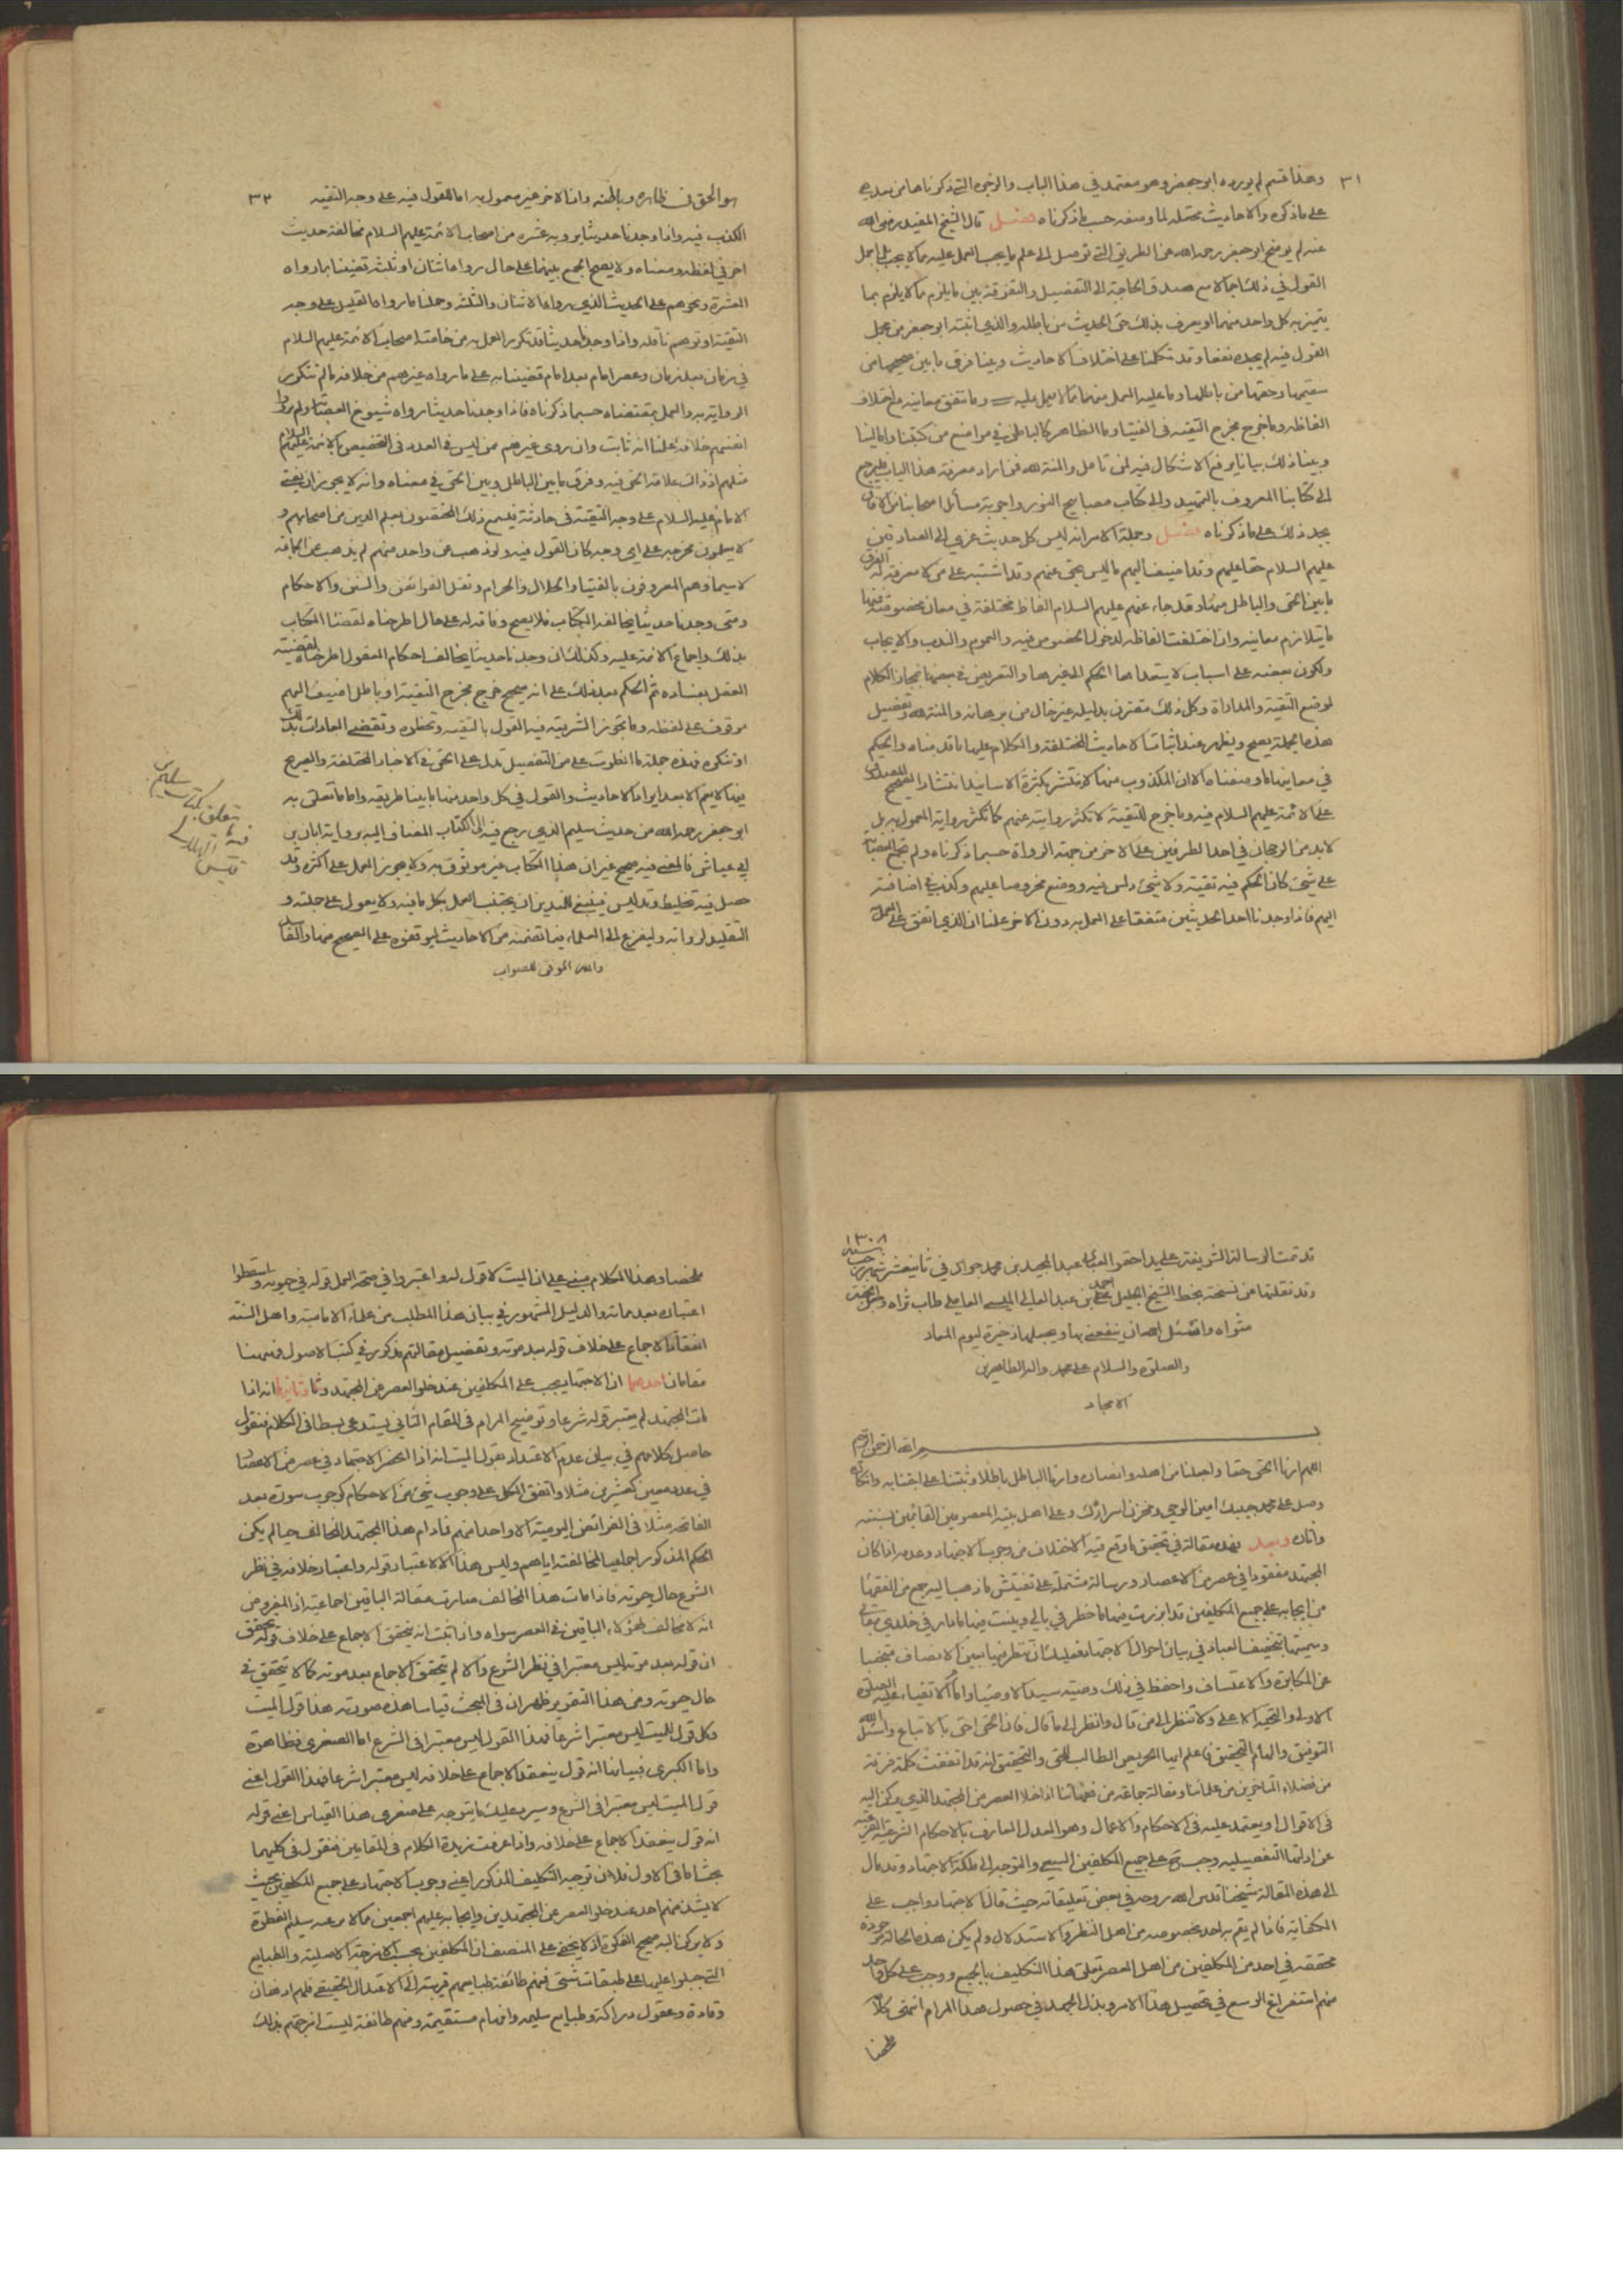 ٣١
وهذا قسم لم يورده ابو جعفر وهو معتمد في هذا الباب والوجوه التي ذكرناها من بعد هي
على ما ذكره والاحاديث محتملة لما وصفه حسب ما ذكرناه فصل قال الشيخ المفيد رضي الله
عنه لم يوضح ابو جعفر رحمه الله عن الطريق التي توصل الى علم ما يجب العمل عليه مما لا يجب بل اجمل
القول في ذلك اجمالا مع صدق الحاجة الى التفصيل والتفرقة بين ما يلزم مما لا يلزم بما
يتميز به كل واحد منهما ويعرف بذلك حق الحديث من باطله والذي اثبته ابو جعفر من مجمل
القول فيه لم يجد نفعا وقد تكلمنا على اختلاف الاحاديث وبينا فرق ما بين صحيحها من
سقيمها وحقها من باطلها وما عليه العمل منها مما لا يعمل عليه وما تتفق معانيه مع اختلاف
الفاظه وما خرج مخرج التقية في الفتيا وما الظاهر كالباطن في مواضع من كتبنا وامالينا
وبينا ذلك بيانا يرفع الاشكال فيه لمن تامل والمنة لله فمن اراد معرفة هذا الباب فليرجع
الى كتابنا المعروف بالتمهيد والى كتاب مصابيح النور واجوبة مسائل اصحابنا من الافاق
يجد ذلك على ما ذكرناه فصل وجملة الامر انه ليس كل حديث عزي الى الصادقين
عليهم السلام حقا عليهم وقد اضيف اليهم ما ليس بحق عنهم وقد اشتبه على من لا معرفة له الفرق
ما بين الحق والباطل وقد جاء عنهم عليهم السلام الفاظ مختلفة في معان مخصوصة فمنها
ما يتلازم معانيه وان اختلفت الفاظه لدخول الخصوص فيه والعموم والندب والايجاب
ولكون بعضه على اسباب لا يتعداها الحكم الى غيرها والتعريض في بعضها بمجاز الكلام
لوضع التقية والمداراة وكل ذلك مقترن بدليله غير خال من برهانه والمنة لله وتفصيل
هذه الجملة يصح ويظهر عند اثباتنا الاحاديث المختلفة والكلام عليها ما قدمناه والحكم
في معانيها ما وصفناه الا ان المكذوب منها لا ينتشر بكثرة الاسانيد انتشار الصحيح المصدوق
على الائمة عليهم السلام فيه وما خرج للتقية لا تكثر روايته عنهم كما تكثر رواية المعمول به بل
لا بد من الرجحان في احد الطرفين على الاخر من جهة الرواة حسبما ذكرناه ولم تجمع العصابة
على شيء كان الحكم فيه تقية ولا شيء دلس فيه ووضع مخروصا عليهم وكذب في اضافته
اليهم فاذا وجدنا احد الحديثين متفقا على العمل به دون الاخر علمنا ان الذي اتفق على العمل به
٣٢
هو الحق في ظاهره وباطنه وان الاخر غير معمول به اما للقول فيه على وجه التقية
الكذب فيه واذا وجدنا حديثا يرويه عشرة من اصحاب الائمة عليهم السلام مخالفة حديث
اخر في لفظه ومعناه ولا يصح الجمع بينهما على حال رواه اثنان او ثلثة قضينا بما رواه
العشرة ونحوهم على الحديث الذي رواه الاثنان والثلثة وحملنا ما رواه القليل على وجه
التقية او توهم ناقله واذا وجدنا حديثا قد تكرر العمل به من خاصة اصحاب الائمة عليهم السلام
في زمان بعد زمان وعصر امام بعد امام قضينا به على ما رواه غيرهم من خلافه ما لم تتكرر
الرواية به والعمل بمقتضاه حسبما ذكرناه فاذا وجدنا حديثا رواه شيوخ العصابة ولم يوردوا
انفسهم خلافه علمنا انه ثابت وان روى غيرهم ممن ليس في العدد في التخصيص بالائمة عليهم السلام
مثلهم اذ ذاك علامة الحق فيه وفرق ما بين الباطل وبين الحق في معناه وانه لا يجوز ان يفتى
الامام عليه السلام على وجه التقية في حادثة فيسمع ذلك المختصون بعلم الدين من اصحابهم و
لا يعلمون مخرجه على اي وجه كان القول فيه ولو ذهب عن واحد منهم لم يذهب عن الجماعة
لا سيما وهم المعروفون بالفتيا والحلال والحرام ونقل الفرائض والسنن والاحكام
ومتى وجدنا حديثا يخالفه الكتاب فلا يصح وفاقه له على حال اطرحناه لقضاء الكتاب
بذلك واجماع الائمة عليه وكذلك ان وجدنا حديثا يخالف احكام العقول اطرحناه لقضية
العقل بفساده ثم الحكم بعد ذلك على انه صحيح خرج مخرج التقية او باطل اضيف اليهم
موقوف على لفظه وما تجوز الشريعة فيه القول بالتقية وتحظره وتقضي العادات بذلك
او تنكره فهذه جملة ما انطوت على من التفصيل تدل على الحق في الاخبار المختلفة والصريح
فيها لا يتم الا بعد ايراد الاحاديث والقول في كل واحد منها ما بينا طريقه واما ما تعلق به
ابو جعفر رحمه الله من حديث سليم الذي رجع فيه الى الكتاب المضاف اليه برواية ابان بن
ابي عياش فالمعنى فيه صحيح غير ان هذا الكتاب غير موثوق به ولا يجوز العمل على اكثره وقد
حصل فيه تخليط وتدليس فينبغي للمتدين ان يجتنب العمل بكل ما فيه ولا يعول على جملته و
التقليد لرواته وليفزع الى العلماء فيما تضمنه من الاحاديث ليوقفوه على الصحيح منها والفاسد
والله الموفق للصواب
فيما يتعلق بكتاب سليم بن
قيس الهلالي
قد تمت الرسالة الشريفة على يد احقر العباد عبد المجيد بن محمد جواد في ثاني عشر شهر رجب سنة ١٣٠٨
وقد نقلتها عن نسخة بخط الشيخ الجليل احمد بن عبد العالي الميسي العاملي طاب ثراه وجعل الجنة
مثواه واسئل الله ان ينفعني بها ويجعلها ذخيرة ليوم المعاد
والصلوة والسلام على محمد واله الطاهرين
الامجاد
بسم الله الرحمن الرحيم
اللهم ارنا الحق حقا واجعلنا من اهله وانصاره وارنا الباطل باطلا وثبتنا على اجتنابه وانكاره
وصل على محمد حبيبك امين الوحي ومخزن اسرارك وعلى اهل بيته المعصومين القائمين بسنته
واثاره وبعد فهذه مقالة في تحقيق ما وقع فيه الاختلاف من وجوب الاجتهاد وعدمه اذا كان
المجتهد مفقودا في عصر من الاعصار ورسالة مشتملة على تفتيش ما ذهب اليه جمع من الفقهاء
من ايجابه على جميع المكلفين قد ابرزت فيها ما خطر في بالي وبينت فيها ما دار في خلدي
وسميتها بتخفيف العباد في بيان احوال الاجتهاد فعليك ان تنظر فيها بعين الانصاف مجتنبا
عن المكابرة والاعتساف واحفظ في ذلك وصية سيد الاوصياء وامام الاتقياء عليه الصلوة
الاولى والتحية الاعلى ولا تنظر الى من قال وانظر الى ما قال فان الحق احق بالاتباع واسئل الله
التوفيق والهام التحقيق فاعلم ايها الحريص الطالب للحق والتحقيق انه قد اتفقت كلمة فرقة
من فضلاء المتاخرين من علمائنا ومقالة جماعة من فقهائنا اذا خلا العصر من المجتهد الذي يركن اليه
في الاقوال ويعتمد عليه في الاحكام والاعمال وهو العدل العارف بالاحكام الشرعية الفرعية
عن ادلتها التفصيلية وجب على جميع المكلفين السعي والتوجه الى ملكة الاجتهاد وقد مال
الى هذه المقالة شيخنا قدس الله روحه في بعض تعليقاته حيث قال الاجتهاد واجب على
الكفاية فاذا لم يقم به احد بخصوصه من اهل النظر والاستدلال ولم يكن هذه الحالة موجودة
محققة في احد من المكلفين من اهل العصر تعلق هذا التكليف بالجميع ووجب على كل واحد
منهم استفراغ الوسع في تحصيل هذا الامر وبذل الجهد في حصول هذا المرام انتهى كلامه
ملخصا
ملخصا وهذا الكلام مبني على ان الميت لا قول له واعتبروا في صحة العمل قوله في حيوته واسقطوا
اعتباره بعد مماته والدليل المشهور في بيان هذا المطلب من علماء الامامية واهل السنة
انعقاد الاجماع على خلاف قوله بعد موته وتفصيل مقالتهم مذكور في كتب الاصول فههنا
مقامان احدهما ان الاجتهاد يجب على المكلفين عند خلو العصر من المجتهد وثانيهما انه اذا
مات المجتهد لم يعتبر قوله شرعا وتوضيح المرام في المقام الثاني يستدعي بسطا في الكلام فنقول
حاصل كلامهم في بيان عدم الاعتداد بقول الميت انه اذا انحصر الاجتهاد في عصر من الاعصار
في عدد معين كعشرين مثلا واتفق الكل على وجوب شيء من الاحكام كوجوب سورة بعد
الفاتحة مثلا في الفرائض اليومية الا واحدا منهم فما دام هذا المجتهد المخالف حيا لم يكن
الحكم المذكور اجماعيا لمخالفته اياهم وليس هذا الا لاعتبار قوله واعتبار خلافه في نظر
الشرع حال حيوته فاذا مات هذا المخالف صارت مقالة الباقين اجماعية اذ المفروض
انه لا مخالف لهؤلاء الباقين في العصر سواه واذا ثبت انه يتحقق الاجماع على خلاف قوله تحقق
ان قوله بعد موته ليس معتبرا في نظر الشرع والا لم يتحقق الاجماع بعد موته كما لا يتحقق في
حال حيوته ومن هذا التقرير ظهر ان في المبحث قياسا هذه صورته هذا قول الميت
وكل قول للميت ليس معتبرا شرعا فهذا القول ليس معتبرا في الشرع اما الصغرى فظاهرة
واما الكبرى فبيانها انه قول ينعقد الاجماع على خلافه ليس معتبرا شرعا فهذا القول اعني
قول الميت ليس معتبرا في الشرع وسيرد عليك ما يتوجه على صغرى هذا القياس اعني قوله
انه قول ينعقد الاجماع على خلافه واذا عرفت زبدة الكلام في المقامين فنقول في كليهما
بحث اما في الاول فلان توجيه التكليف المذكور اعني وجوب الاجتهاد على جميع المكلفين بحيث
لا يشذ منهم احد عند خلو العصر عن المجتهدين وايجابه عليهم اجمعين مما لا يرضى سليم الفطرة
ولا يركن اليه صحيح الفكرة اذ لا يخفى على المنصف ان المكلفين بحسب الامزجة الاصلية والطبايع
التي جبلوا عليها على طبقات شتى فمنهم طائفة طبايعهم قريبة الى الاعتدال الحقيقي فلهم اذهان
وقادة وعقول دراكة وطبايع سليمة وافهام مستقيمة ومنهم طائفة ليست امزجتهم بذلك